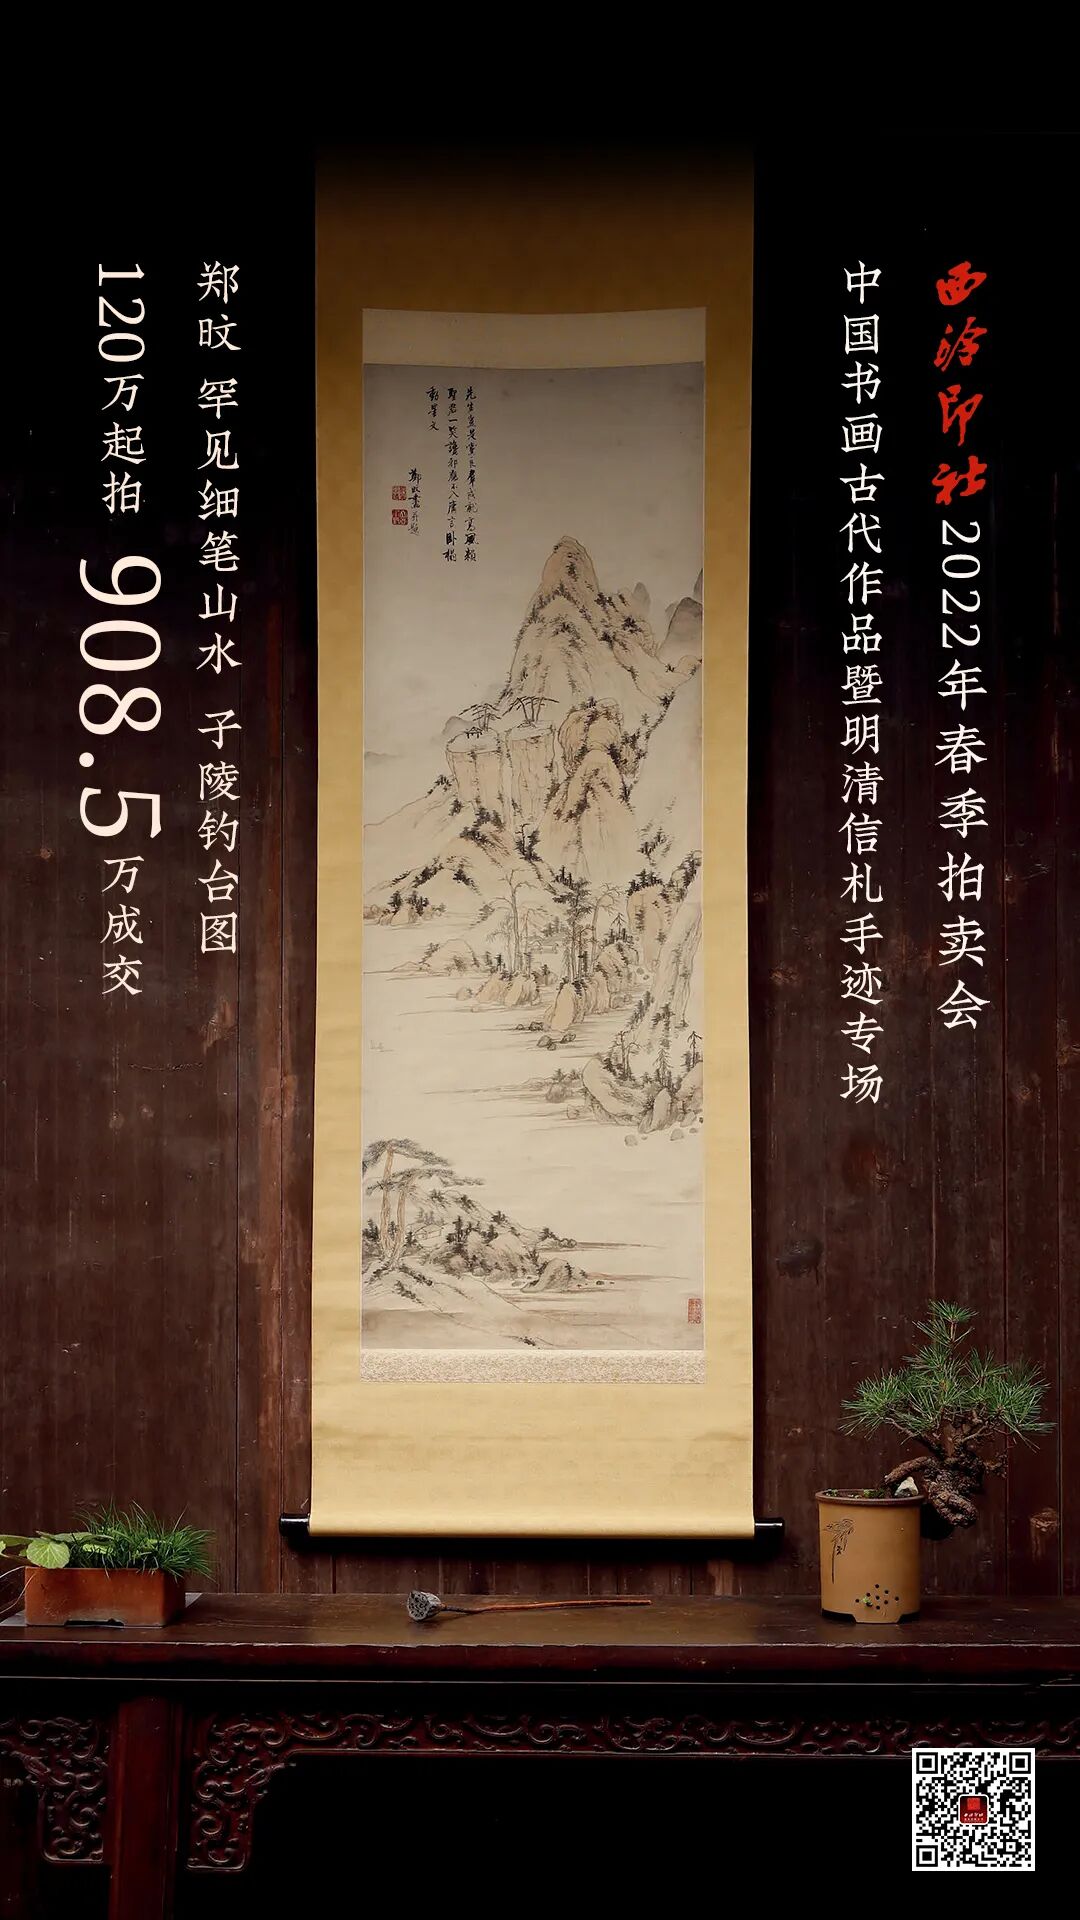 西泠印社2022年春季拍卖会
中国书画古代作品暨明清信札手迹专场
先生豈是高風賴
聖君一笑讓卧榻
動星文
鄭旼畫并題
郑旼 罕见细笔山水 子陵钓台图
120万起拍 908.5万成交